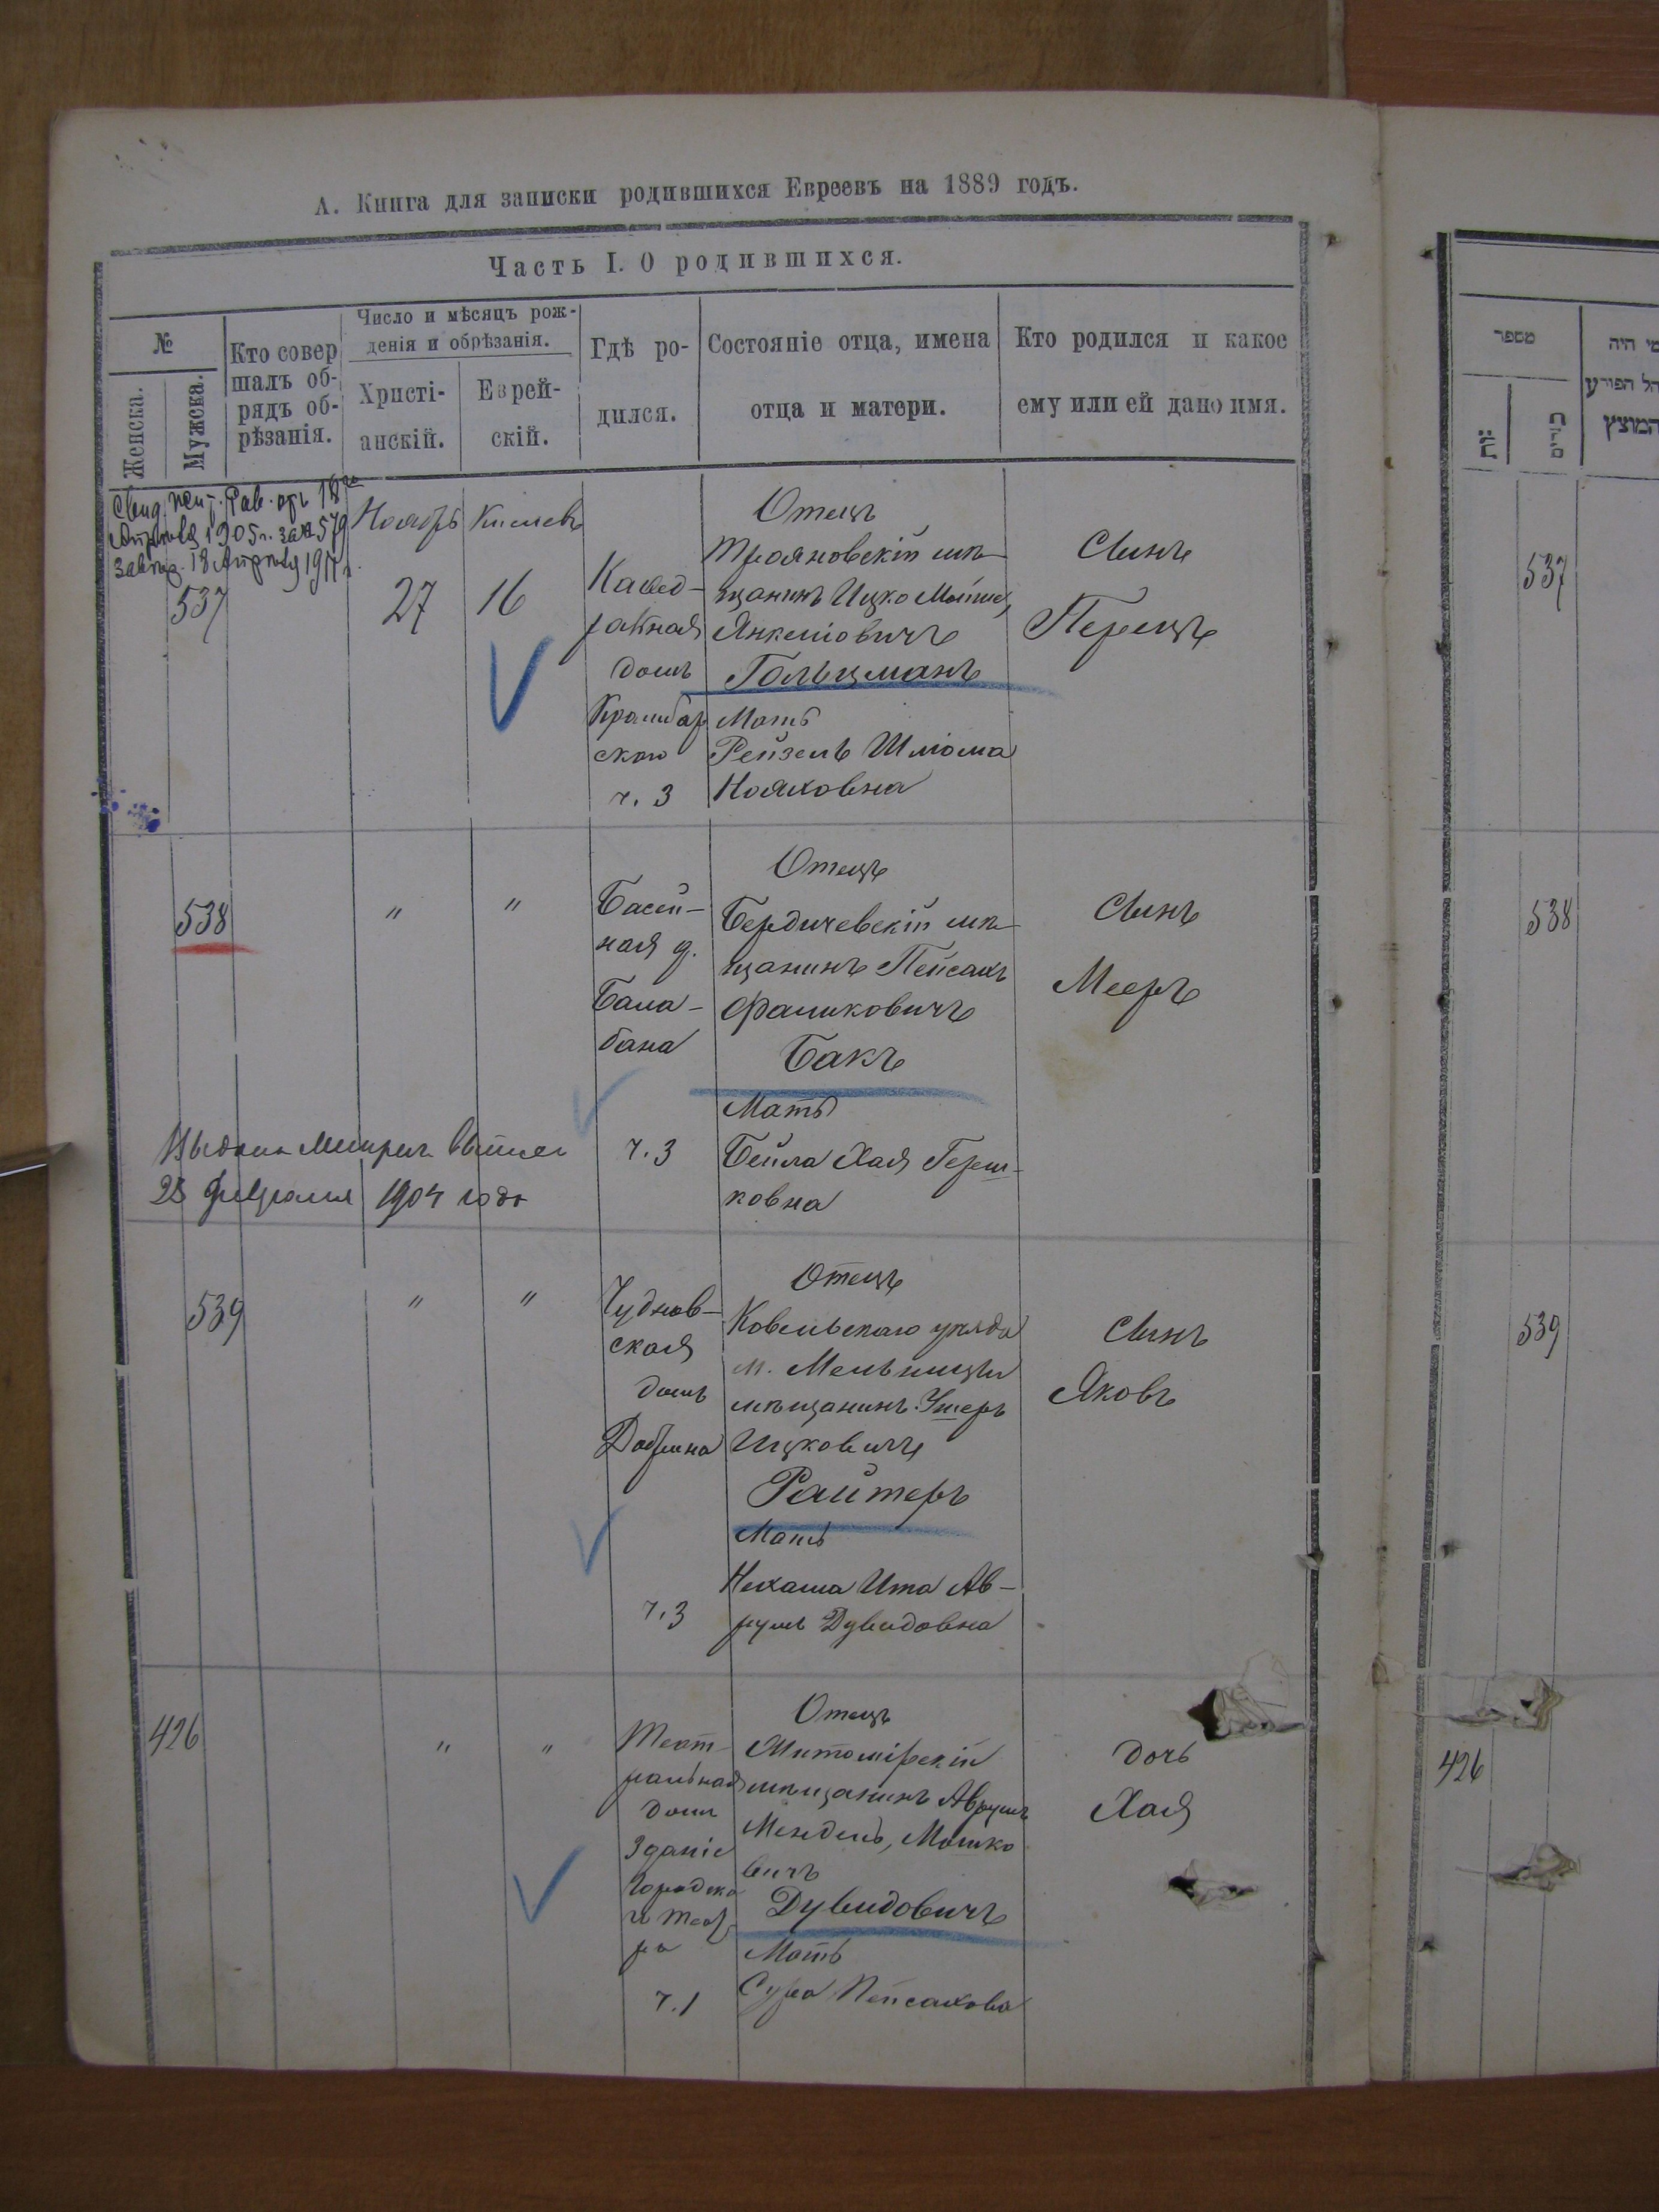 А. Книга для записки родившихся Евреевъ на 1889 годъ.
Часть I. О родившихся.
№
Женска.
Мужска.
Кто совер
шалъ об-
рядъ об-
рѣзанія.
Число и мѣсяцъ рож-
денія и обрѣзанія.
Христі-
анскій.
Еврей-
скій.
Гдѣ ро-
дился.
Состояніе отца, имена
отца и матери.
Кто родился и какое
ему или ей дано имя.
Рав. отъ 18го
1905 г. за № 579
18 Апрѣля
537
Ноябрь
27
Кислевъ
16
Кафед-
ральная
домъ
скаго
ч. 3
Отецъ
Трояновскій мѣ-
щанинъ Ицко Мойше
Янкелiовичъ
Гольцманъ
Мать
Рейзель Шліома
Нояховна
Сынъ
Перецъ
538
"
"
Басей-
ная д.
Бала-
бана
ч. 3
Отецъ
Бердичевскій мѣ-
щанинъ Пейсахъ
Фаликовичъ
Бакъ
Мать
Бейла Хая Герш-
ковна
Сынъ
Мееръ
Выдана
28 Февраля 1904 года
539
"
"
Чуднов-
ская
домъ
ч. 3
Отецъ
Ковельскаго уѣзда
м. Мельницы
мѣщанинъ Ушеръ
Ицковичъ
Райтеръ
Мать
Нехама Ита Ав-
румъ Дувидовна
Сынъ
Яковъ
426
"
"
Теат-
ральная
домъ
Зданіе
Городско
го Теат
ра
ч. 1
Отецъ
Житомірскій
мѣщанинъ Аврумъ
Мендель, Мошко
вичъ
Дувидовичъ
Мать
Сура Пейсахова
дочь
Хая
מספר
537
538
539
426